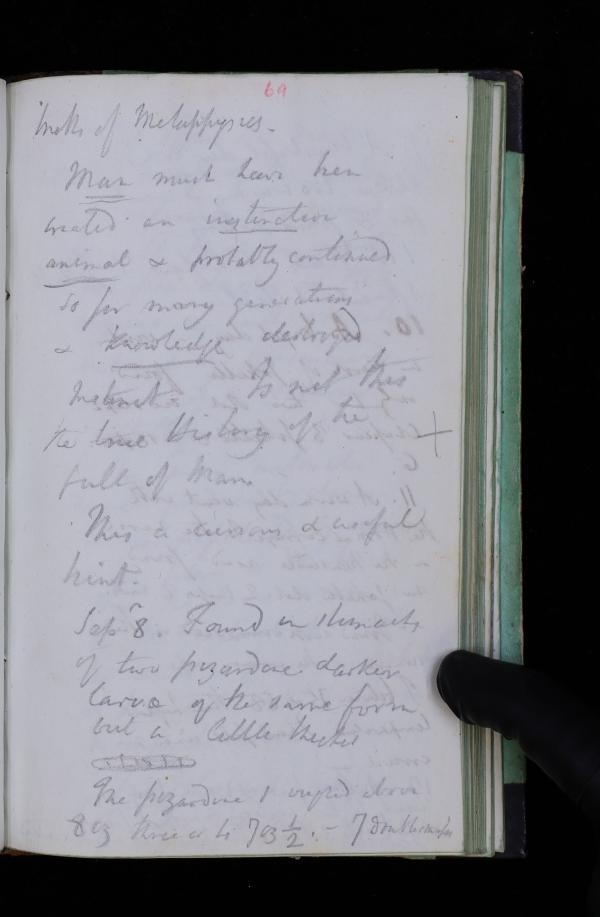 69
of Metaphysics.
Man must have been
created an instinctive
animal & probably continued
so for many generations
& knowledge destroyed
Instinct. Is not this
the true History of the
fall of Man
This a curious & useful
hint.
Sep.r 8. Found in stomachs
of two darker
larvæ of the same form
but a little thicker
The I above
8 oz three at 7 oz ½. – 7